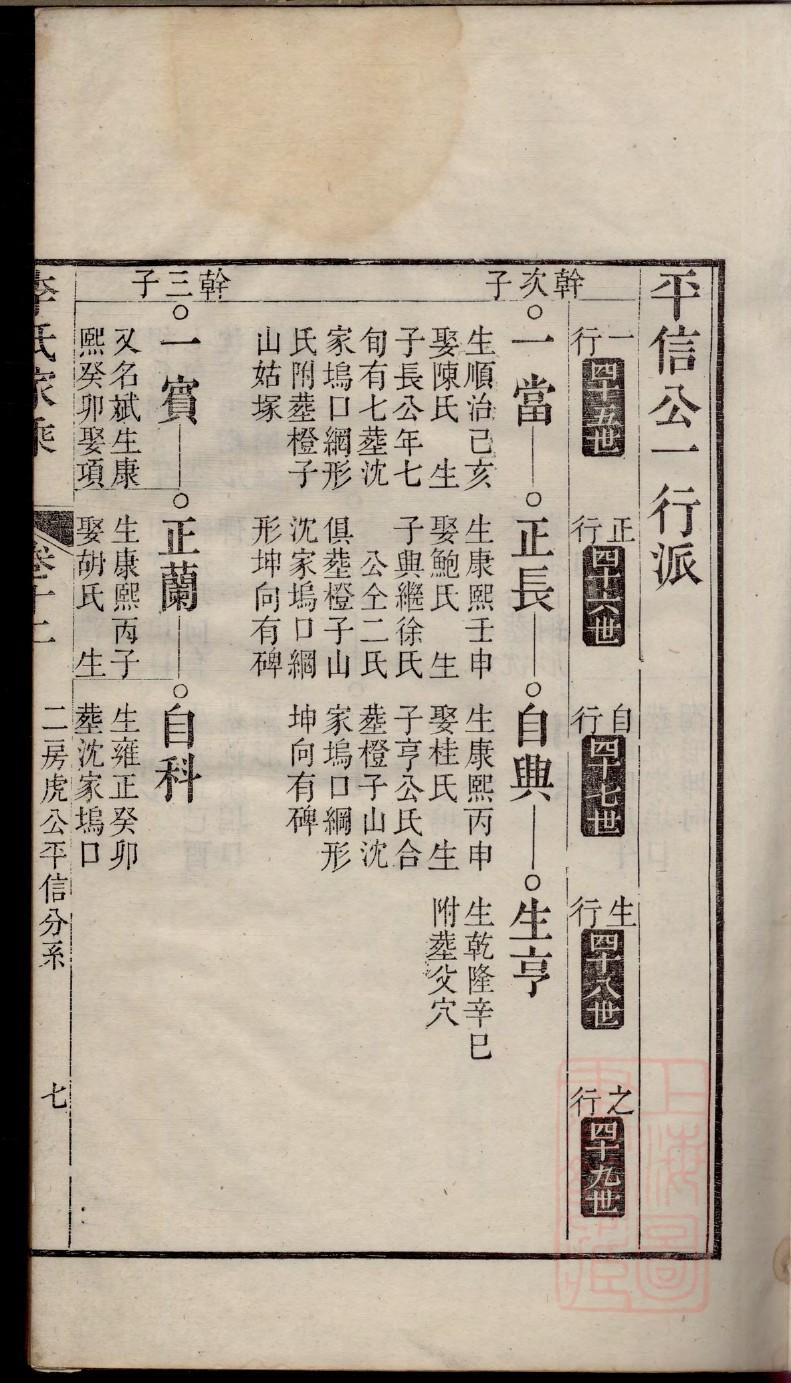 平信公一行派
一行 四十五世
正行 四十六世
自行 四十七世
生行 四十八世
之行 四十九世
幹次子
一當
生順治己亥
娶陳氏 生
子長公年七
旬有七塟沈
家塢口網形
氏附塟橙子
山姑塚
正長
生康熙壬申
娶鮑氏 生
子典繼徐氏
公仝二氏
俱塟橙子山
沈家塢口網
形坤向有碑
自典
生康熙丙申
娶桂氏 生
子亨公氏合
塟橙子山沈
家塢口網形
坤向有碑
生亨
生乾隆辛巳
附塟父穴
幹三子
一賓
又名斌生康
熙癸卯娶項
正蘭
生康熙丙子
娶胡氏 生
自科
生雍正癸卯
塟沈家塢口
李氏家乘
卷十二
二房虎公平信分系
七